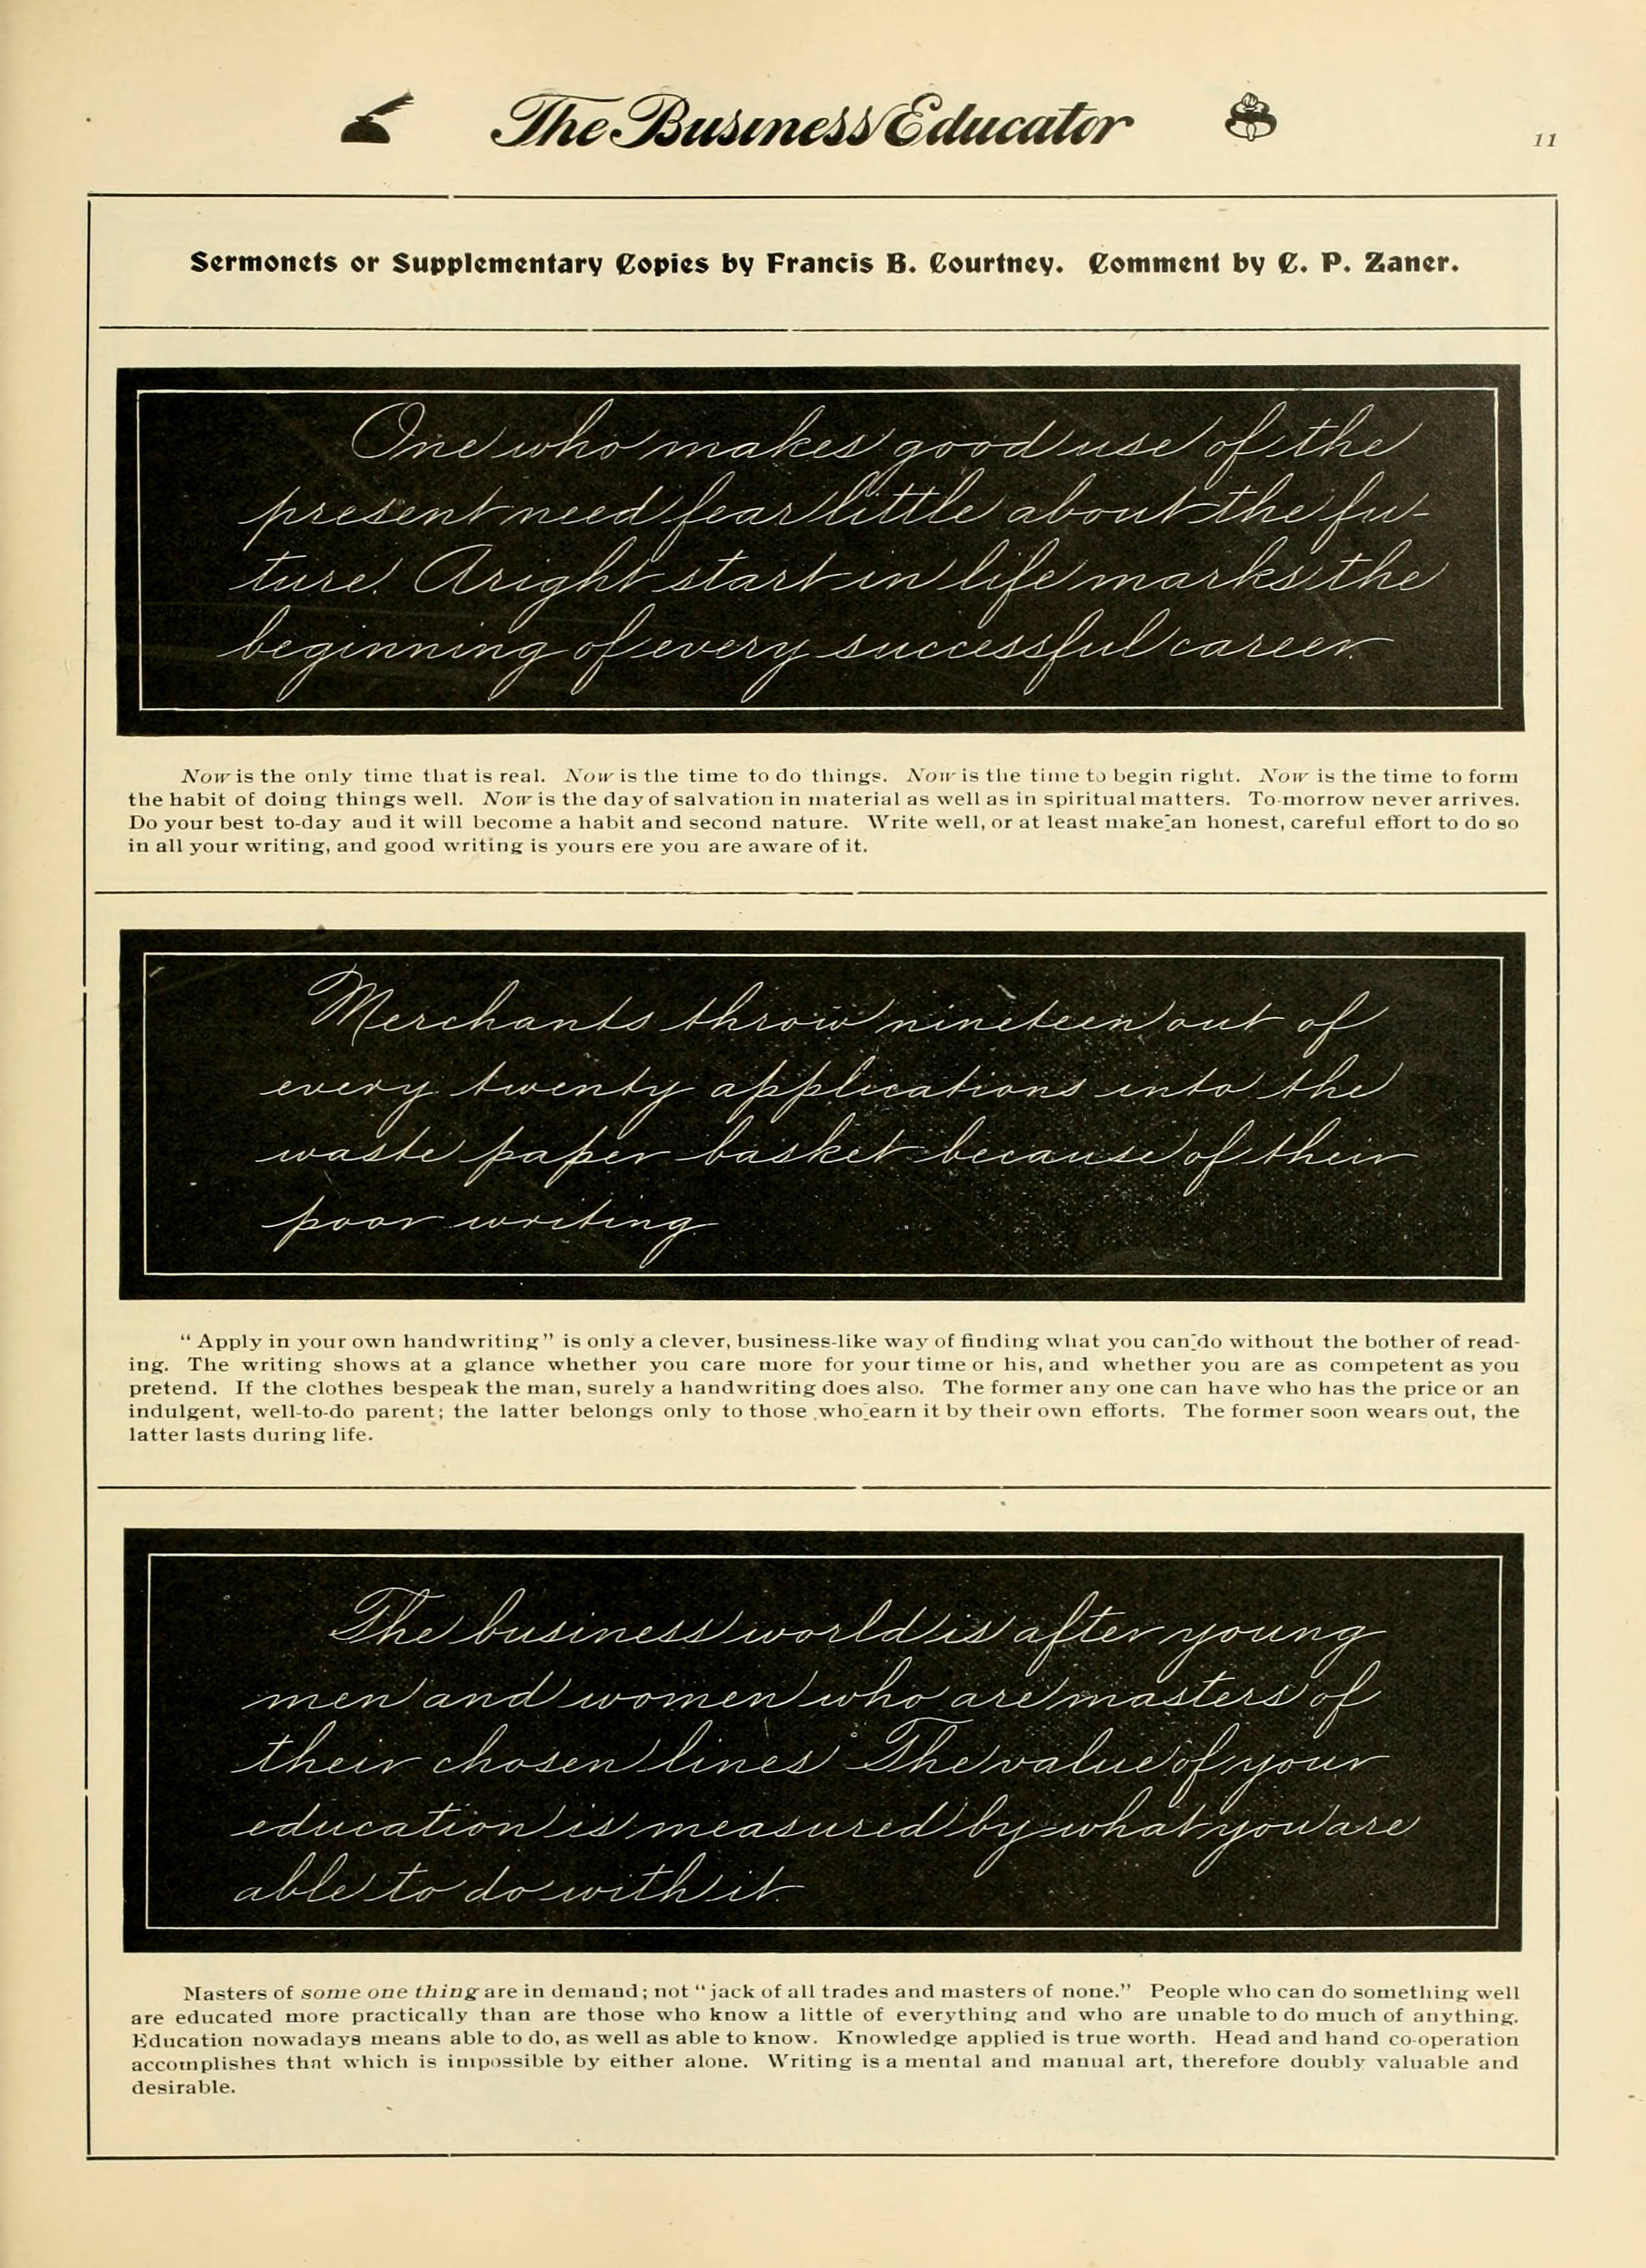 The Business Educator
11
Sermonets or Supplementary Copies by Francis B. Courtney. Comment by C. P. Zaner.
One who makes good use of the
present need fear little about the fu-
ture. A right start in life marks the
beginning of every successful career.
Now is the only time that is real. Now is the time to do things. Now is the time to begin right. Now is the time to form
the habit of doing things well. Now is the day of salvation in material as well as in spiritual matters. To-morrow never arrives.
Do your best to-day aud it will become a habit and second nature. Write well, or at least make an honest, careful effort to do so
in all your writing, and good writing is yours ere you are aware of it.
Merchants throw nineteen out of
every twenty applications into the
waste paper basket because of their
poor writing
“Apply in your own handwriting” is only a clever, business-like way of finding what you can do without the bother of read-
ing. The writing shows at a glance whether you care more for your time or his, and whether you are as competent as you
pretend. If the clothes bespeak the man, surely a handwriting does also. The former any one can have who has the price or an
indulgent, well-to-do parent; the latter belongs only to those who earn it by their own efforts. The former soon wears out, the
latter lasts during life.
The business world is after young
men and women who are masters of
their chosen lines The value of your
education is measured by what you are
able to do with it.
Masters of some one thing are in demand; not “jack of all trades and masters of none.” People who can do something well
are educated more practically than are those who know a little of everything and who are unable to do much of anything.
Education nowadays means able to do, as well as able to know. Knowledge applied is true worth. Head and hand co-operation
accomplishes that which is impossible by either alone. Writing is a mental and manual art, therefore doubly valuable and
desirable.